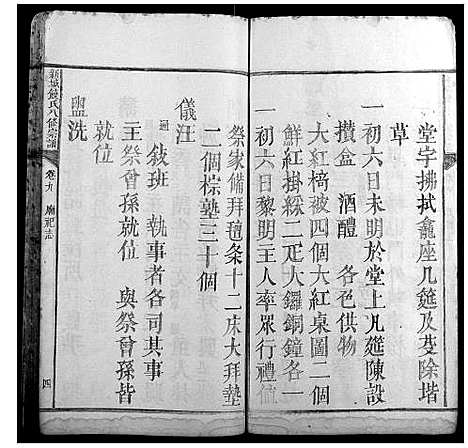 堂宇拂拭龕座几筵及芟除堦
草
一初六日未明於堂上几筵陳設
攢盒　酒醴　各色供物
大紅椅被四個大紅桌圖二個
鮮紅掛綵二疋大鑼銅鐘各一
一初六日黎明主人率眾行禮位
祭家備拜氊條十二床大拜墊
二個棕墊三十個
儀注
通 敘班　執事者各司其事
主祭曾孫就位　與祭曾孫皆
就位
盥洗
新城饒氏八修宗譜　卷九　廟祀志　四